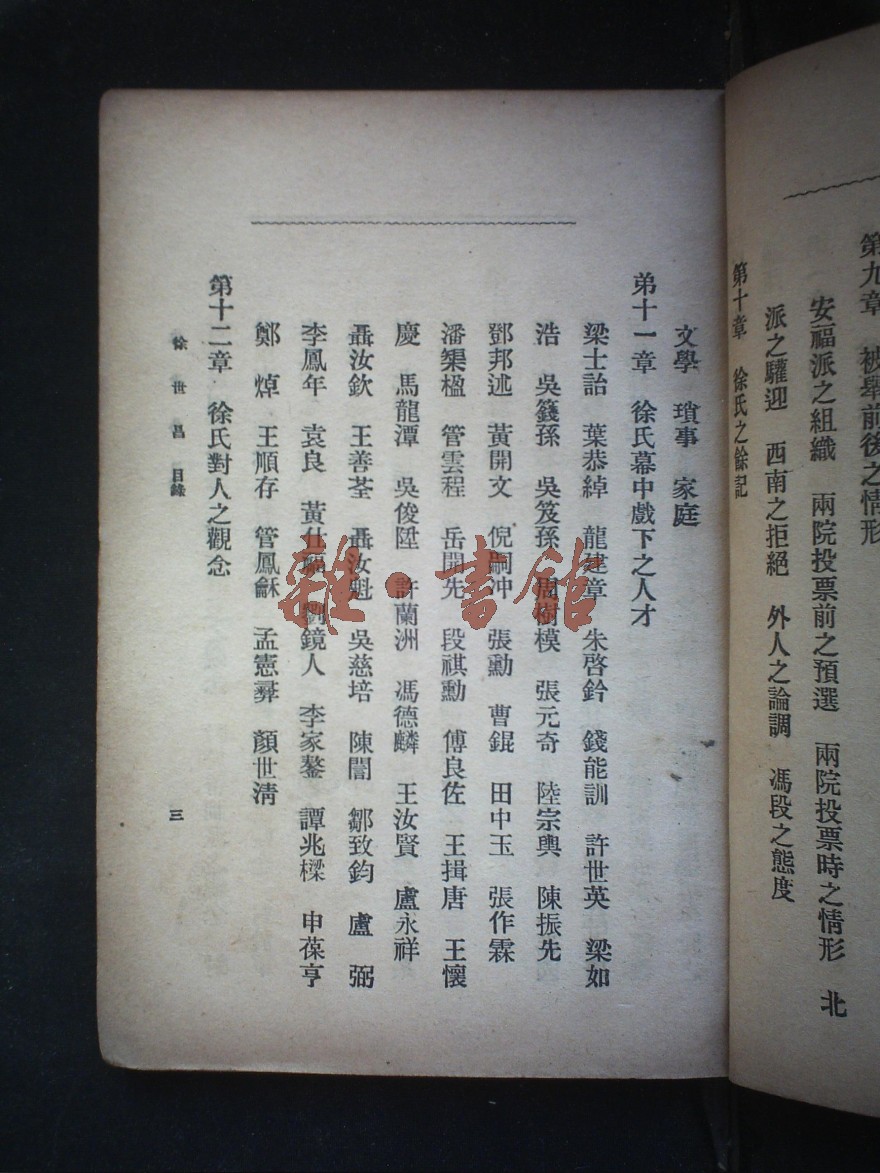 第九章　被舉前後之情形
安福派之組織　兩院投票前之預選　兩院投票時之情形　北
派之驩迎　西南之拒絕　外人之論調　馮段之態度
第十章　徐氏之餘記
文學　瑣事　家庭
弟十一章　徐氏幕中戲下之人才
梁士詒　葉恭綽　龍建章　朱啓鈐　錢能訓　許世英　梁如
浩　吳籛孫　吳笈孫　周樹模　張元奇　陸宗輿　陳振先
鄧邦述　黃開文　倪嗣沖　張勳　曹錕　田中玉　張作霖
潘榘楹　管雲程　岳開先　段祺勳　傅良佐　王揖唐　王懷
慶　馬龍潭　吳俊陞　許蘭洲　馮德麟　王汝賢　盧永祥
聶汝欽　王善荃　聶汝魁　吳慈培　陳誾　鄒致鈞　盧　弼
李鳳年　袁良　黃仕福　劉鏡人　李家鏊　譚兆樑　申葆亨
鄭　焯　王順存　管鳳龢　孟憲彝　顏世淸
第十二章　徐氏對人之觀念
徐世昌　目錄
三
雜·書館